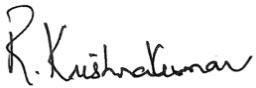 R. Krishnakumar